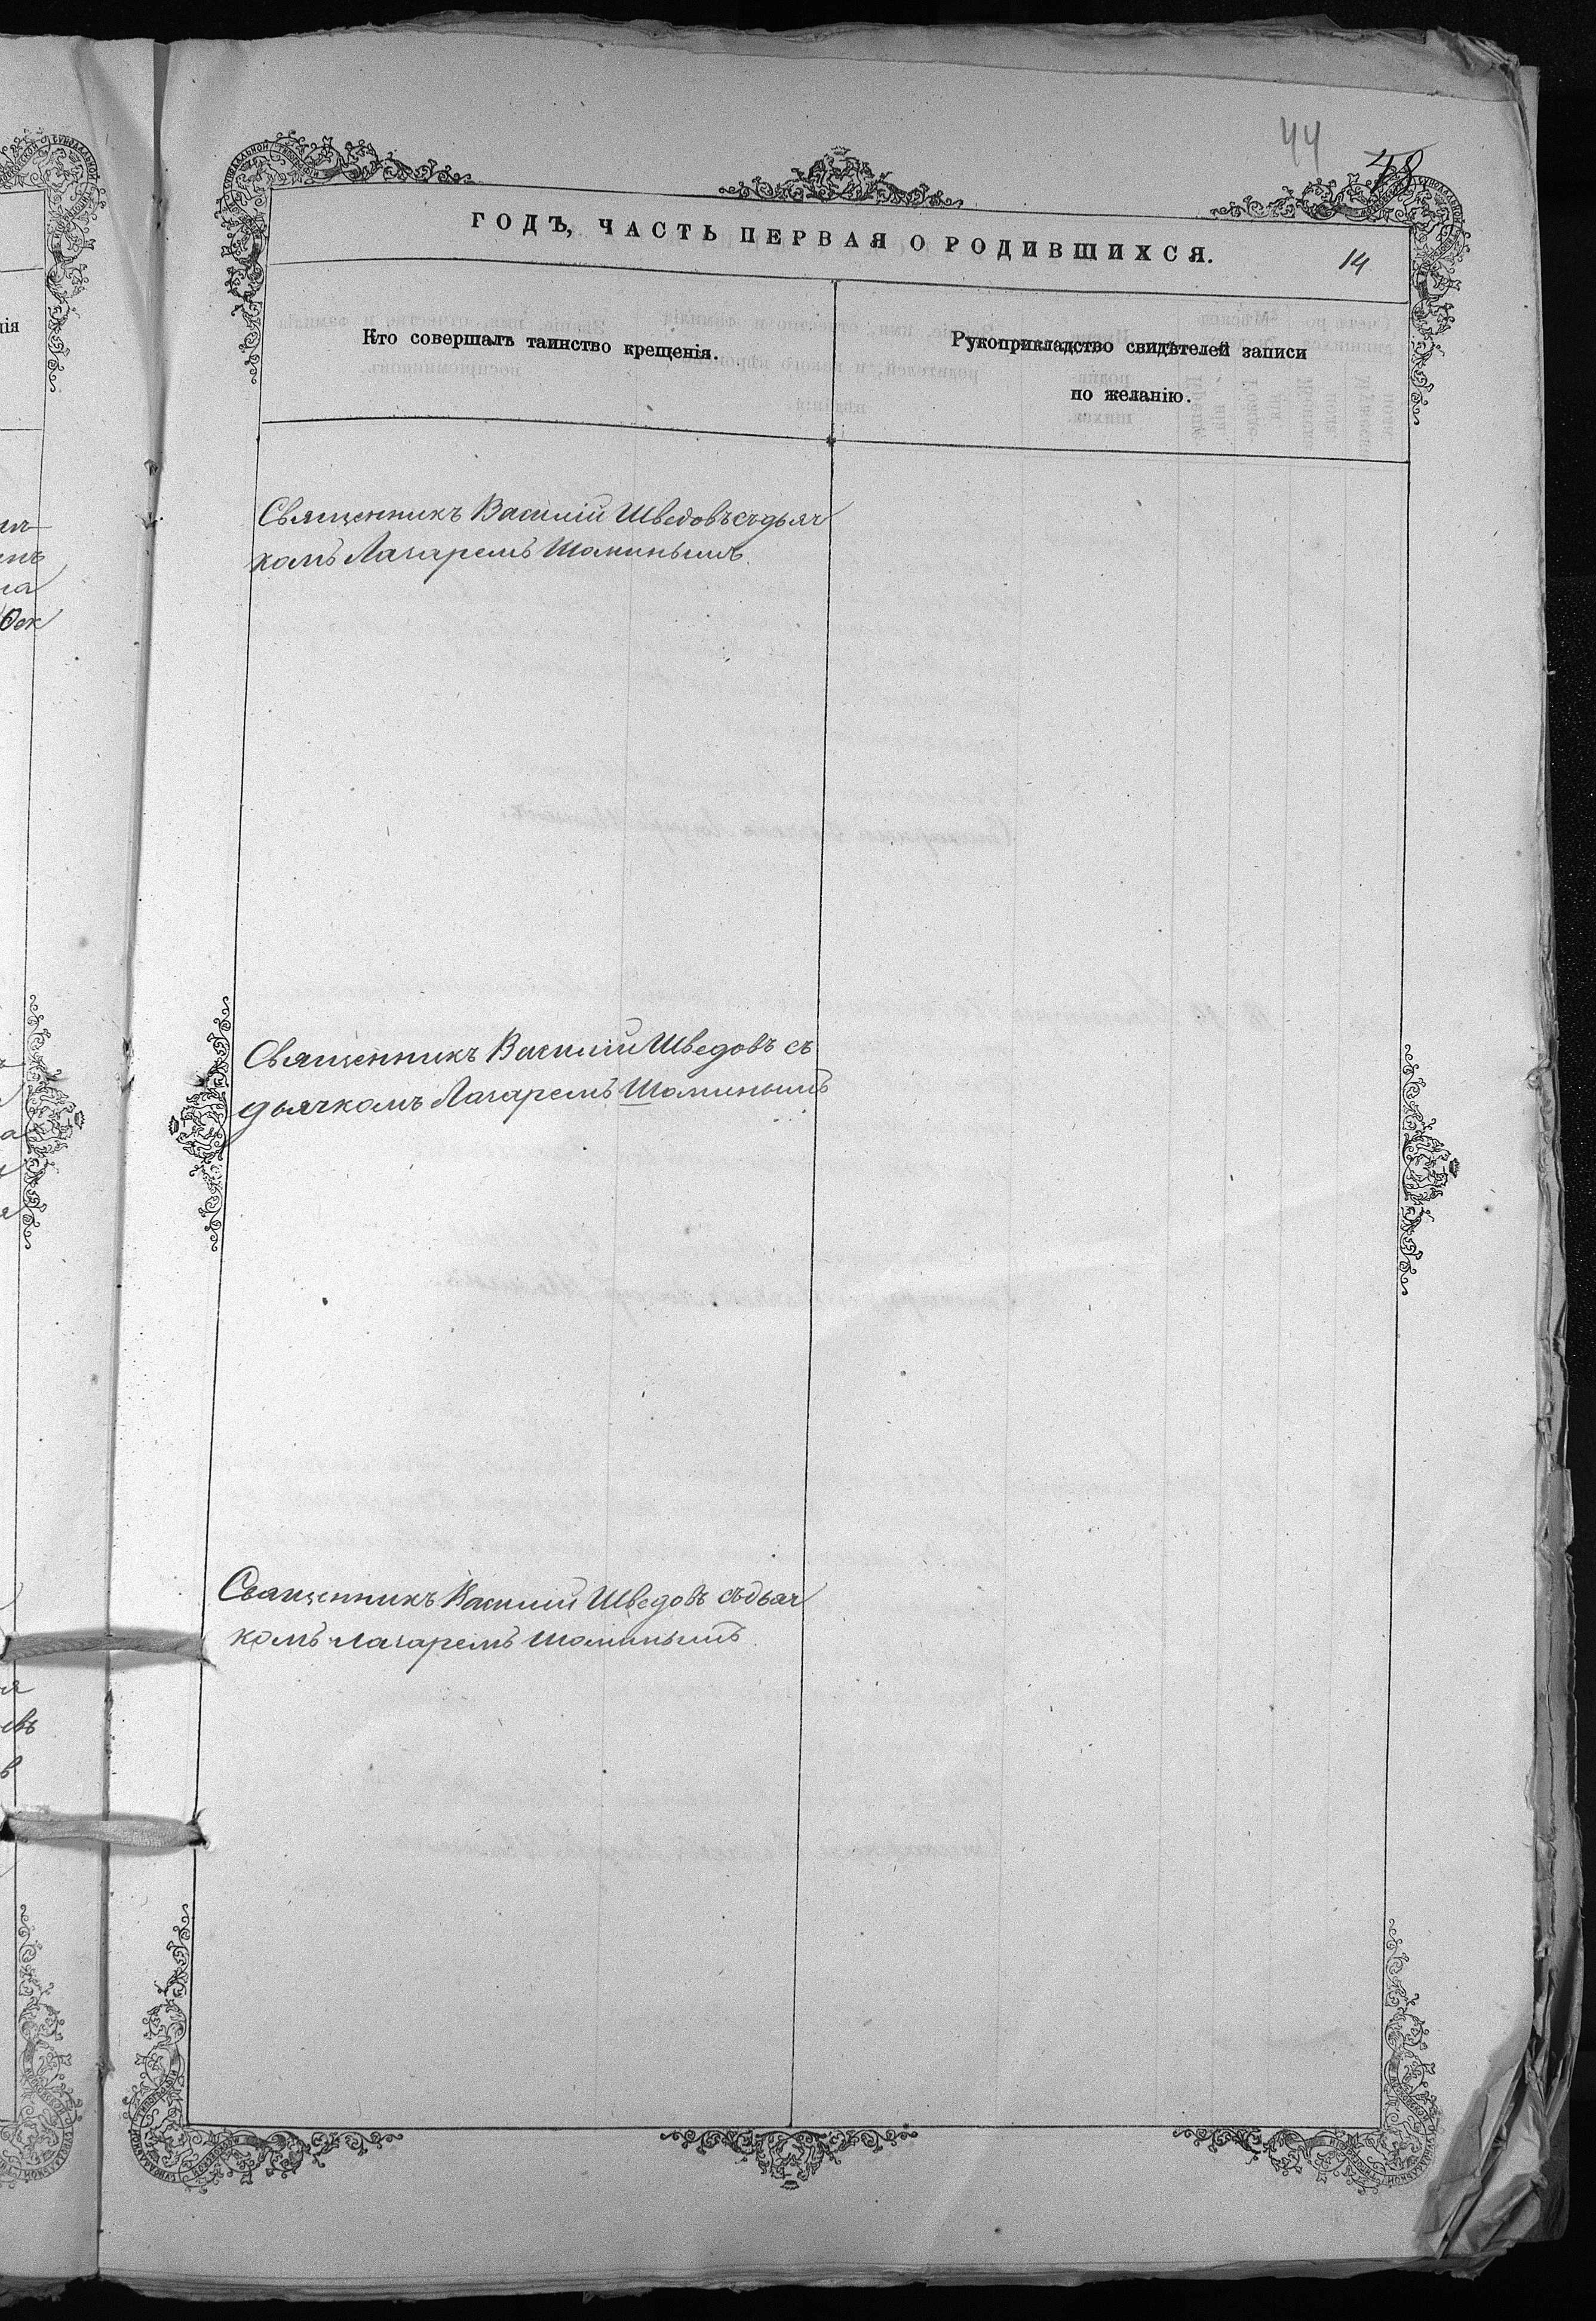 44
48
ГОДЪ, ЧАСТЬ ПЕРВАЯ О РОДИВШИХСЯ.
14
Кто совершалъ таинство крещенія.
Рукоприкладство свидѣтелей записи
по желанію.
Священникъ Василій Шведовъ съ дьяч
комъ Лазаремъ Шоминымъ.
Священникъ Василій Шведовъ съ
дьячкомъ Лазаремъ Шоминымъ
Священникъ Василій Шведовъ съ дьяч
комъ Лазаремъ Шоминымъ.